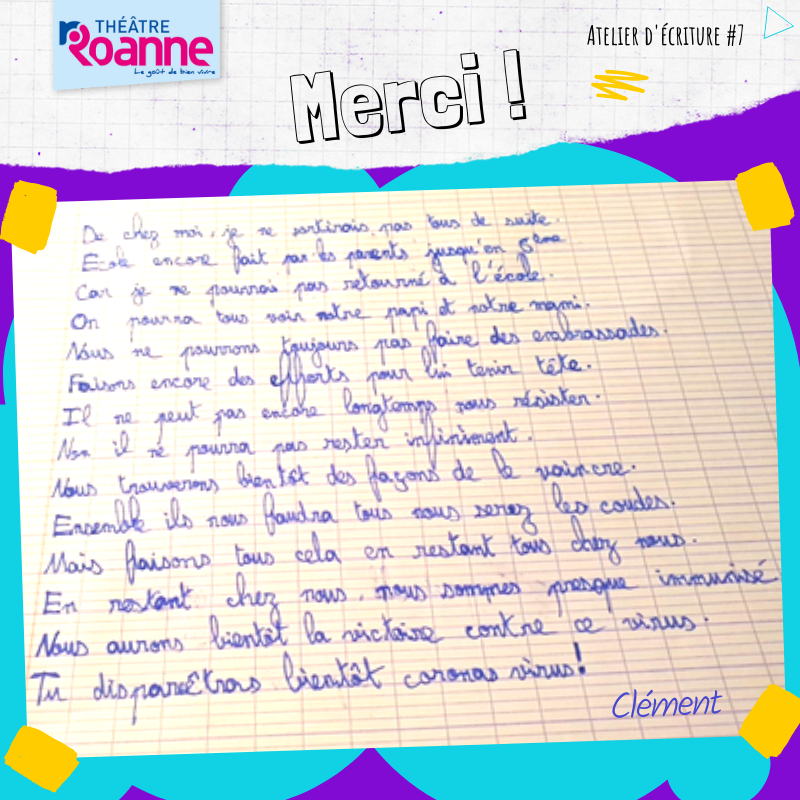 THÉÂTRE
Roanne
Le goût de bien vivre
Atelier d'écriture #7
Merci !
De chez moi, je ne sortirais pas tous de suite.
Ecole encore fait par les parents jusqu'en 5ème
Car je ne pourrais pas retourné à l'école.
On pourra tous voir notre papi et notre mami.
Nous ne pourrons toujours pas faire des embrassades.
Faisons encore des efforts pour lui tenir tête.
Il ne peut pas encore longtemps nous résister.
Non il ne pourra pas rester infiniment.
Nous trouverons bientôt des façons de le vaincre.
Ensemble ils nous faudra tous nous serez les coudes.
Mais faisons tous cela en restant tous chez nous.
En restant chez nous, nous sommes presque immunisé
Nous aurons bientôt la victoire contre ce virus.
Tu disparaîtras bientôt coronas virus!
Clément